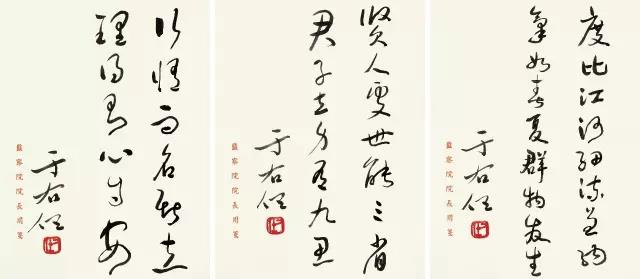 度比江河細流並納
氣如春夏群物發生
于右任
監察院院長用箋
賢人處世能三省
君子立身有九思
于右任
監察院院長用箋
行而名斯立
理得則心自安
于右任
監察院院長用箋